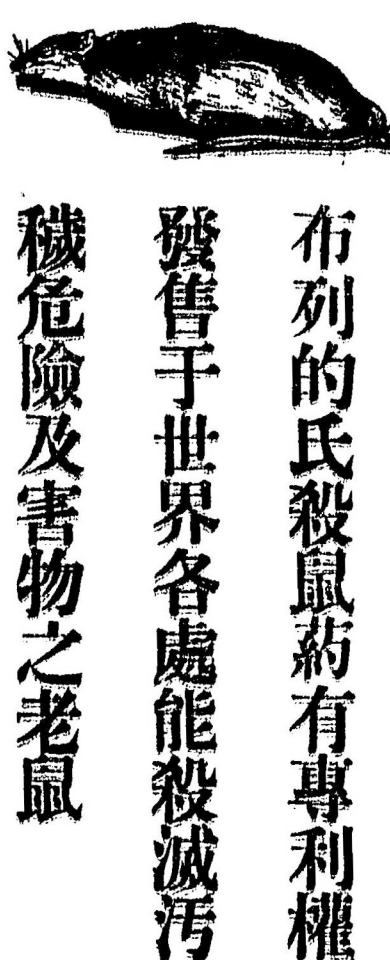 布列的氏殺鼠葯有專利權
發售于世界各處能殺滅汚
穢危險及害物之老鼠